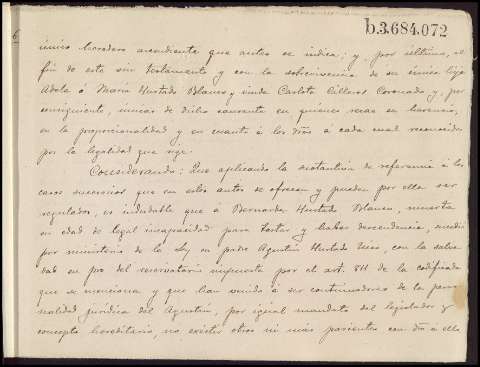 b.3.684.072
6
único heredero ascendiente que antes se indica; y, por último, al
fin de este sin testamento y con la sobrevivencia de su única hija
Adela ó María Hurtado Blanco y viuda Carlota Cillero Coronado y, por
consiguiente, únicas de dicho causante en quienes recae su herencia,
en la proporcionalidad y en cuanto á los dros á cada cual reconocidos
por la legalidad que rige.
Considerando: Que aplicando la sustantiva de referencia á los
casos sucesorios que en estos autos se ofrecen y pueden por ella ser
regulados, es indudable que á Bernarda Hurtado Blanco, muerta
en edad de legal incapacidad para testar y haber descendencia, sucedió
por ministerio de la ley su padre Agustín Hurtado, con la salve
dad en pro del reservatario impuesta por el art. 811 de la codificada
que se menciona y que han venido á ser continuadores de la perso
nalidad jurídica del Agustín, por igual mandato del legislador y
concepto hereditario, no existir otros ni más parientes con dro á ello